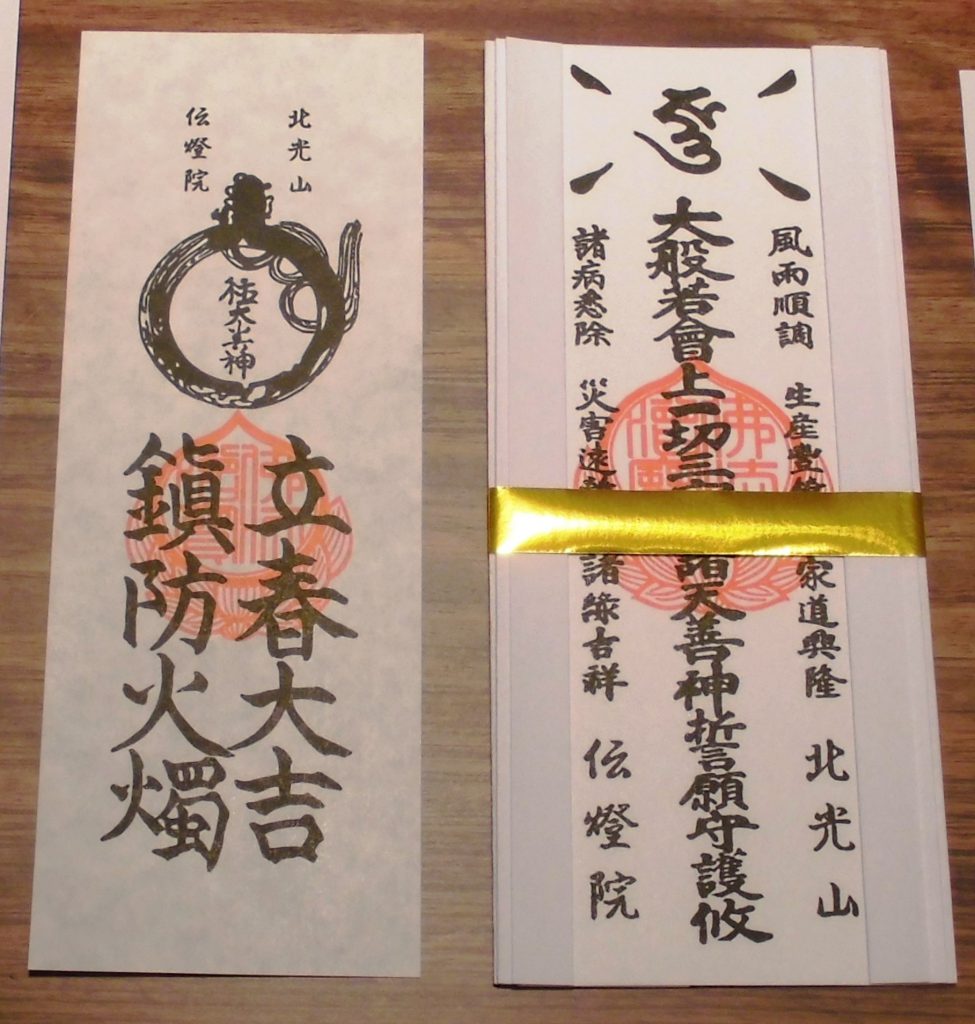 北光山
伝燈院
祐天善神
立春大吉
鎮防火燭
大般若會上一切三 諸天善神誓願守護攸
風雨順調 生産豊 家道興隆 北光山
諸病悉除 災害速 諸縁吉祥 伝燈院